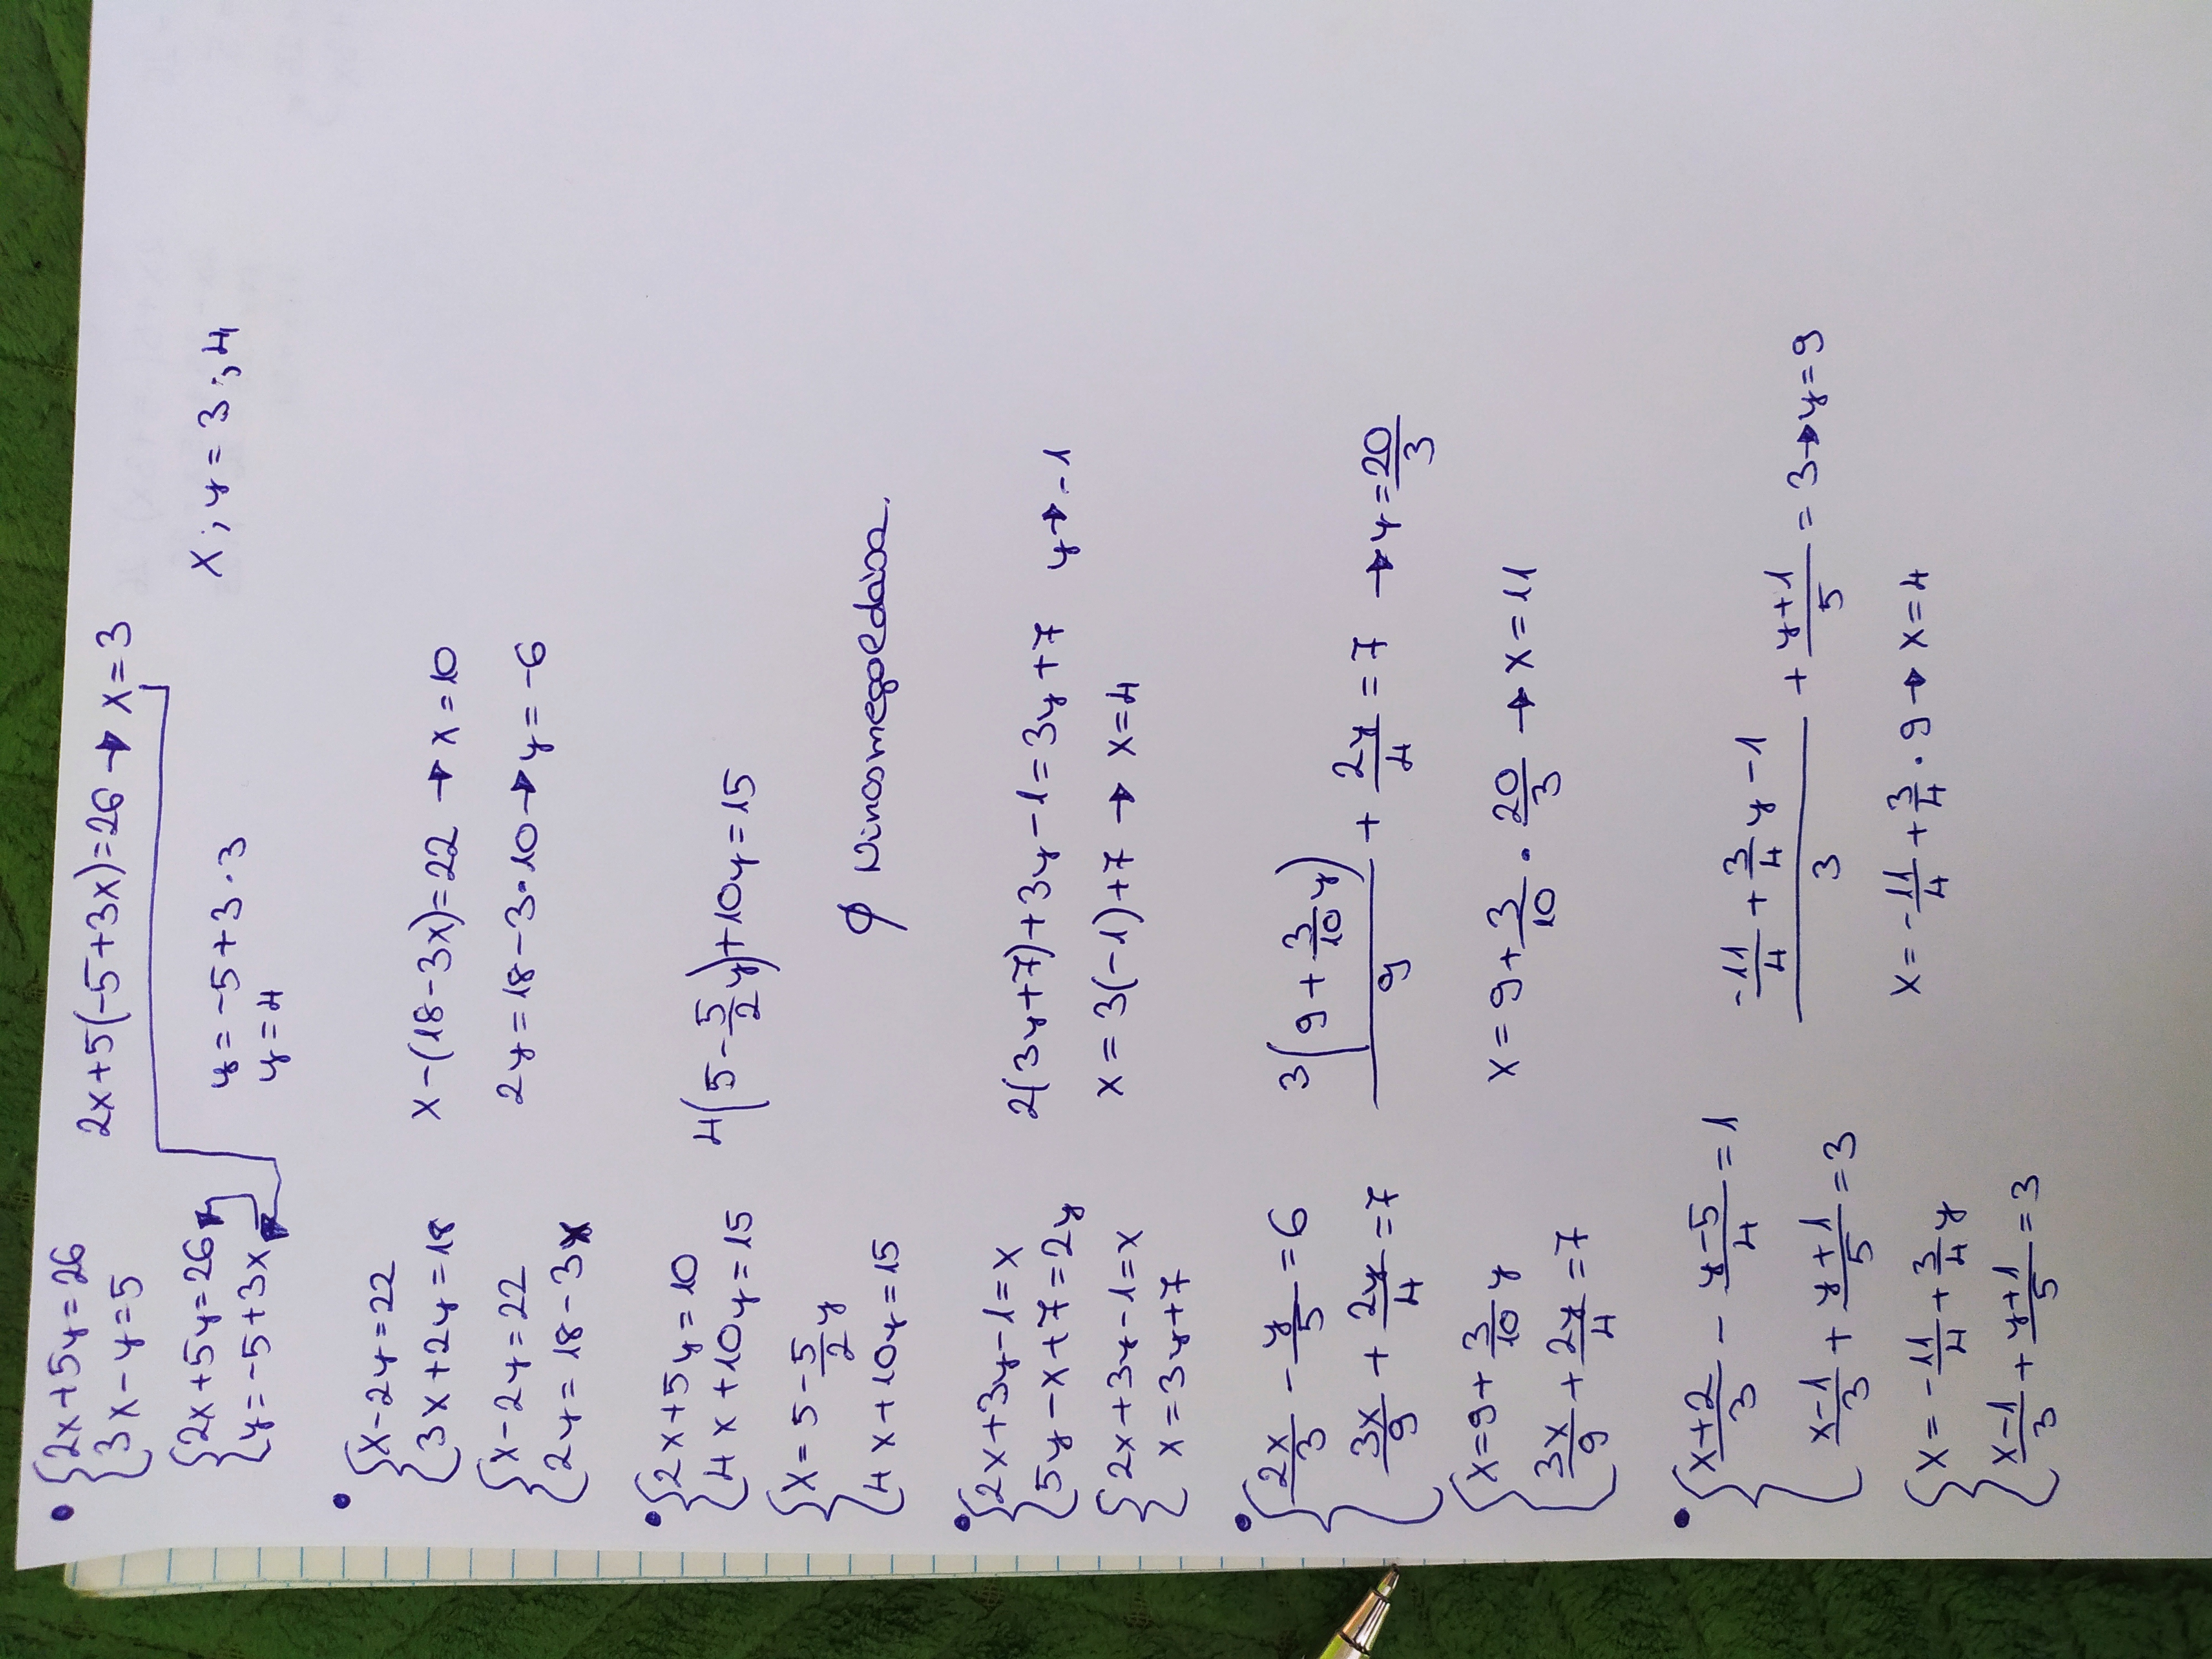 • {2x+5y=26
3x-y=5
2x+5(-5+3x)=26 → x=3
{2x+5y=26
y=-5+3x
y=-5+3·3
y=4
x;y=3;4
• {x-2y=22
3x+2y=18
x-(18-3x)=22 → x=10
{x-2y=22
2y=18-3x
2y=18-3·10 → y=-6
• {2x+5y=10
4x+10y=15
4(5-5/2y)+10y=15
{x=5-5/2y
4x+10y=15
∅ Nincs megoldása.
• {2x+3y-1=x
5y-x+7=2y
2(3y+7)+3y-1=3y+7 y→-1
{2x+3y-1=x
x=3y+7
x=3(-1)+7 → x=4
• {2x/3-y/5=6
3x/9+2y/4=7
3(9+3/10y)/9+2y/4=7 → y=20/3
{x=9+3/10y
3x/9+2y/4=7
x=9+3/10·20/3 → x=11
• {x+2/3-y-5/4=1
x-1/3+y+1/5=3
-11/4+3/4y-1/3+y+1/5=3→y=9
{x=-11/4+3/4y
x-1/3+y+1/5=3
x=-11/4+3/4·9→x=4